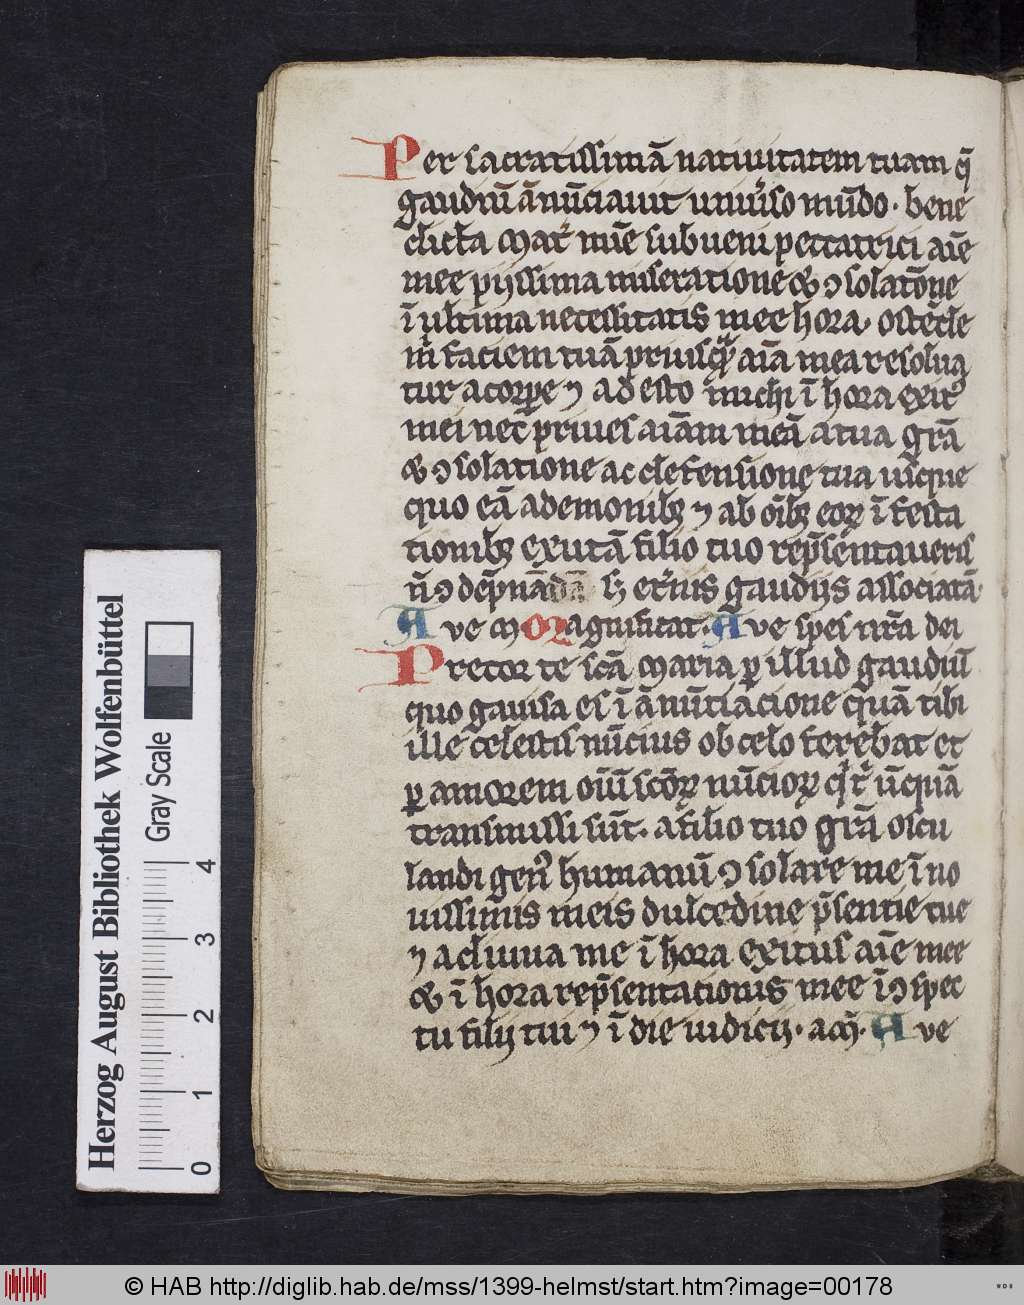 Per sacratissimā natiuitatem tuam q̄
gaudiū ānūciauit uniu'so mūdo · bene
dicta Mat' mīe subueni peccatrici aīe
mee pijssima miseratione & ↄsolatōne
ī ultima necessitatis mee hora · ostēde
m faciem tuā priusq̄ aīa mea resolua
tur a corpe ⁊ ad esto michi ī hora exit9
mei nec priues aīam meā a tua grā
& ↄsolatione ac defensione tua usque
quo eā a demonibꝫ ⁊ ab oībꝫ eoꝝ īfesta
tionibꝫ exutā filio tuo rep̄sentaueris
n̄ ↄdēpnādā sꝫ et'nis gaudijs associatā·
Aue M Magnificat · Aue spes nr̄a dei
Precor te scā Maria ꝑ illud gaudiū
quo gauisa es ī ānūciacione quā tibi
ille celestis nūcius ob celo ferebat et
ꝑ amorem oīū scōꝝ nūcioꝝ q' t' ūquā
transmissi sūt · a filio tuo grā oscu
landi gen9 humanū ↄsolare me ī no
uissimis meis dulcedine p̄sentie tue
⁊ adiuua me ī hora exitus aīe mee
& ī hora rep̄sentationis mee ī ↄspec
tu filij tui ⁊ ī die iudicij · Aue
Herzog August Bibliothek Wolfenbüttel
Gray Scale
0 1 2 3 4
© HAB http://diglib.hab.de/mss/1399-helmst/start.htm?image=00178